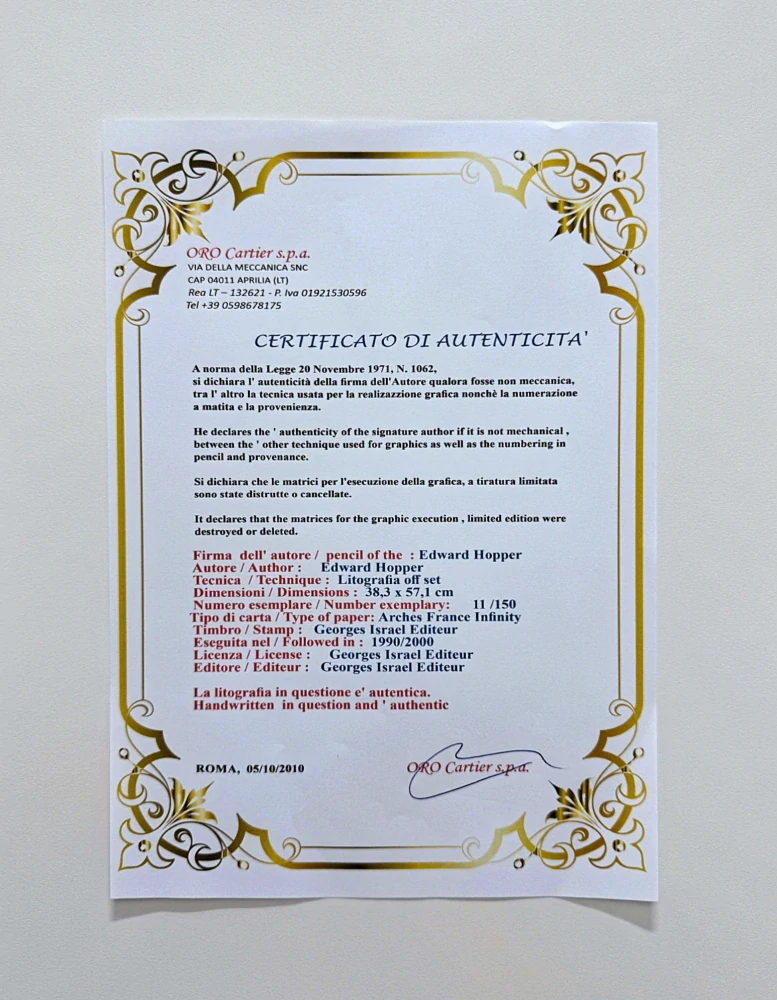 ORO Cartier s.p.a.
VIA DELLA MECCANICA SNC
CAP 04011 APRILIA (LT)
Rea LT – 132621 - P. Iva 01921530596
Tel +39 0598678175
CERTIFICATO DI AUTENTICITA'
A norma della Legge 20 Novembre 1971, N. 1062,
si dichiara l' autenticità della firma dell'Autore qualora fosse non meccanica,
tra l' altro la tecnica usata per la realizazzione grafica nonchè la numerazione
a matita e la provenienza.
He declares the ' authenticity of the signature author if it is not mechanical ,
between the ' other technique used for graphics as well as the numbering in
pencil and provenance.
Si dichiara che le matrici per l'esecuzione della grafica, a tiratura limitata
sono state distrutte o cancellate.
It declares that the matrices for the graphic execution , limited edition were
destroyed or deleted.
Firma dell' autore / pencil of the : Edward Hopper
Autore / Author : Edward Hopper
Tecnica / Technique : Litografia off set
Dimensioni / Dimensions : 38,3 x 57,1 cm
Numero esemplare / Number exemplary: 11 /150
Tipo di carta / Type of paper: Arches France Infinity
Timbro / Stamp : Georges Israel Editeur
Eseguita nel / Followed in : 1990/2000
Licenza / License : Georges Israel Editeur
Editore / Editeur : Georges Israel Editeur
La litografia in questione e' autentica.
Handwritten in question and ' authentic
ROMA, 05/10/2010
ORO Cartier s.p.a.